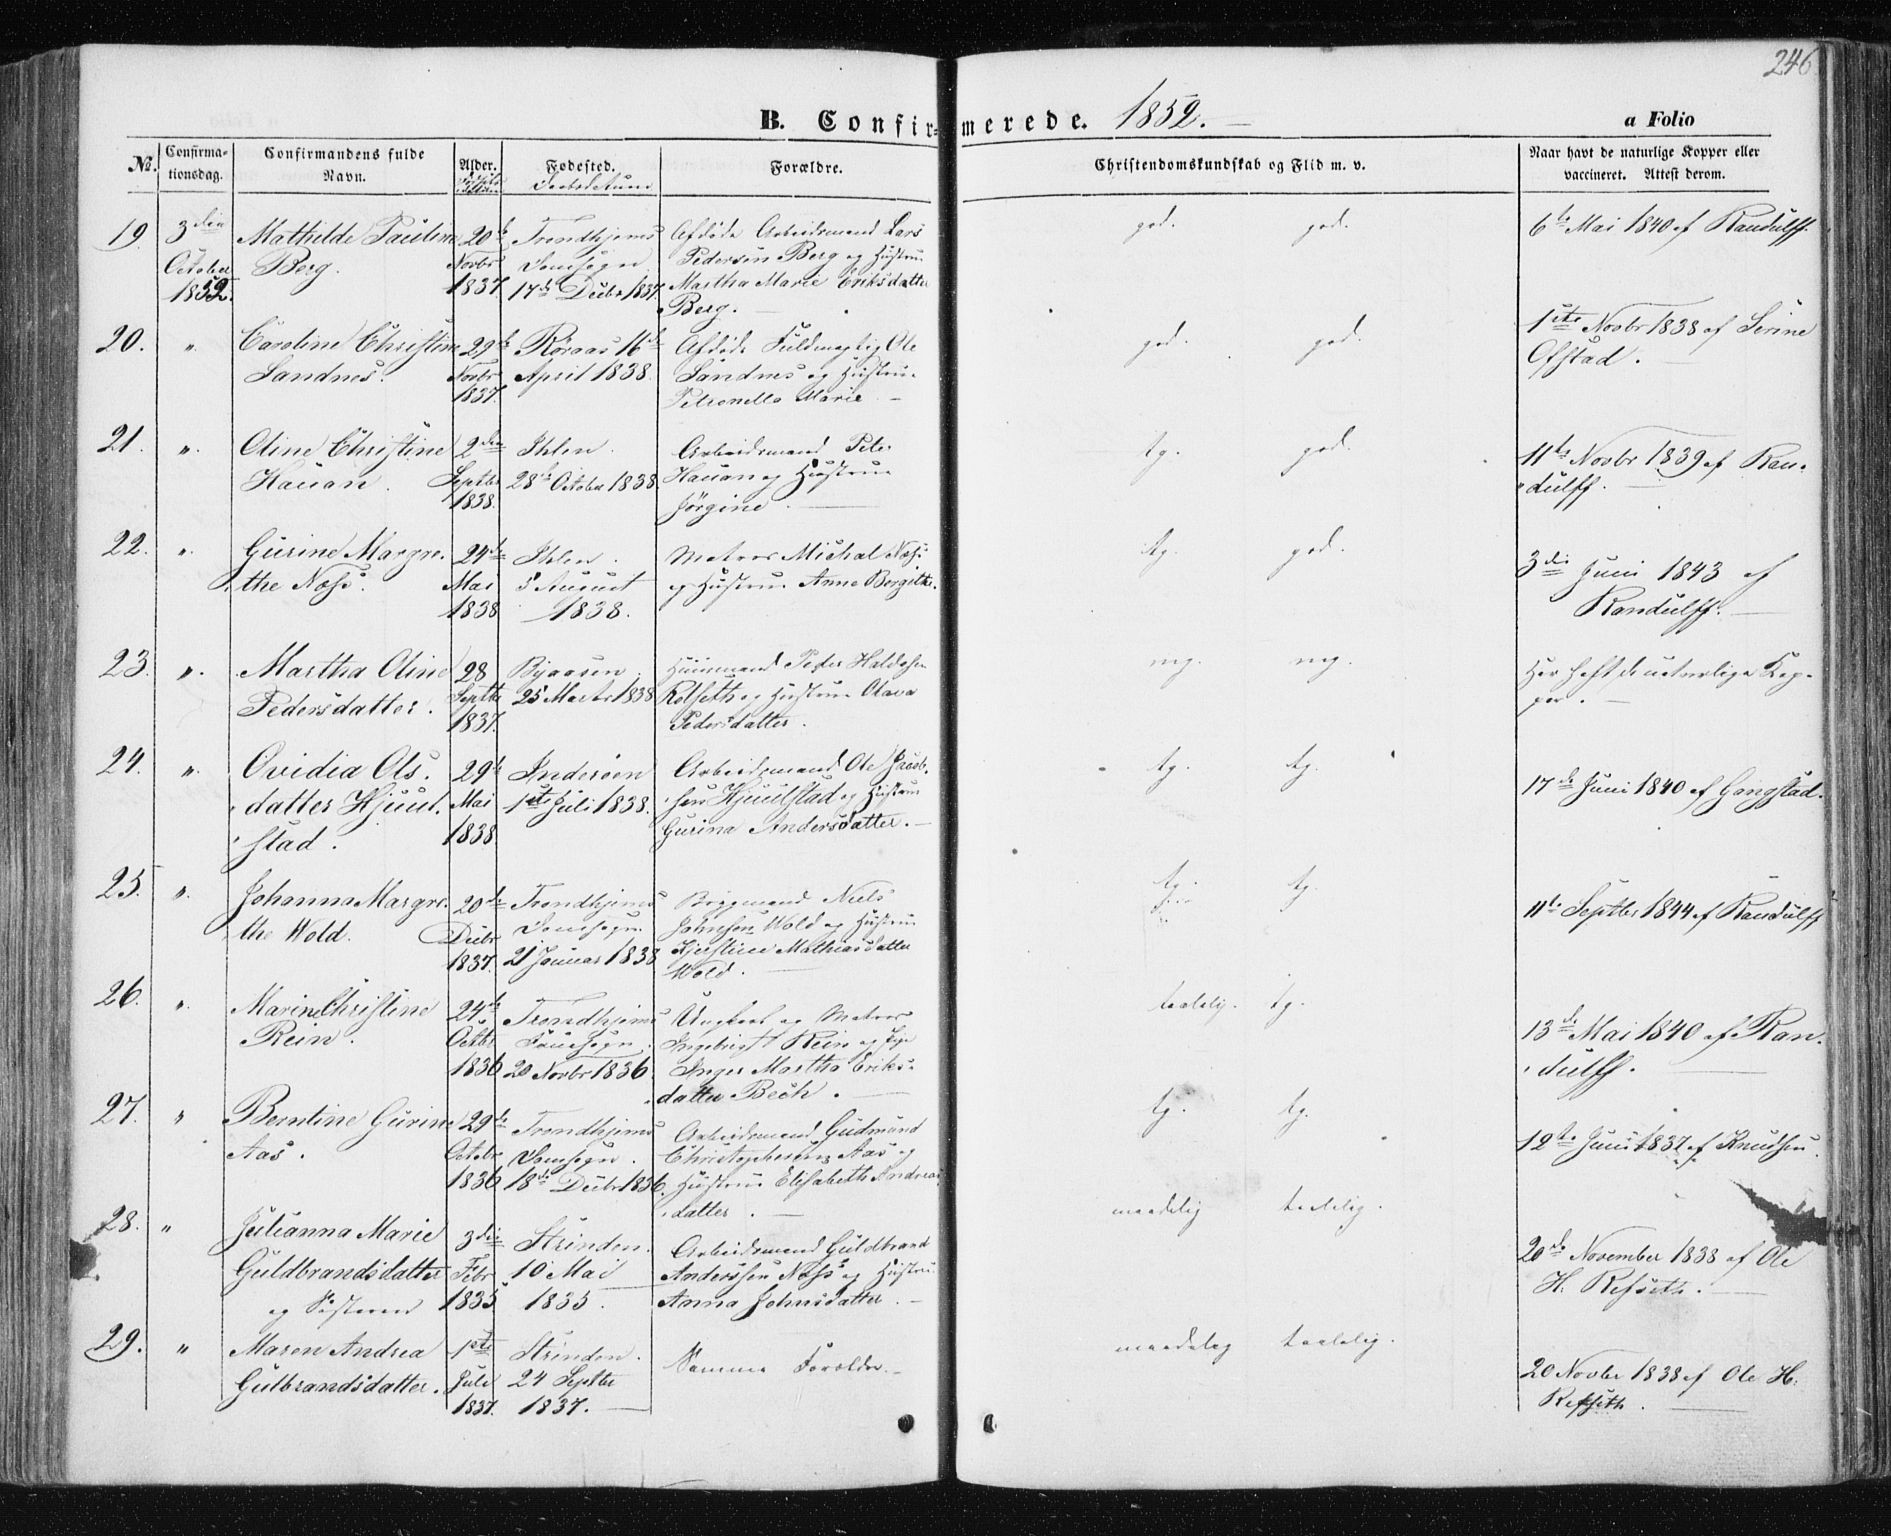 246
B. Confirmerede. 1852. a Folio
No. Confirmationsdag. Confirmandens fulde Navn. Alder. Fødested. Forældre. Christendomskundskab og Flid m. v. Naar havt de naturlige Kopper eller vaccineret. Attest derom.
19. 3die October 1852. Mathilde Pauline Berg. 20de Novbr 1837 Trondhjems Domsogn 17de Decbr 1837. Afdøde Arbeidsmand Lars Pedersen Berg og Hustru Martha Marie Eriksdatter Berg. god. god. 6te Mai 1840 af Randulff.
20. " Caroline Christine Sandnes. 29de Novbr 1837. Röraas 16de April 1838. Afdøde Fuldmægtig Ole Sandnes og Hustru Petronella Marie. god. god. 1ste Novbr 1838 af Serine Ofstad.
21. " Oline Christine Hauan. 2den Septbr 1838. Ihlen. 28de October 1838 Arbeidsmand Peter Hauan og Hustru Jørgine. tg. god. 11te Novbr 1839 af Randulff.
22. " Gurine Margrethe Næss. 24de Mai 1838 Ihlen. 5 August 1838. Matros Michal Næss og Hustru Anne Bergitte. tg. god. 3die Juni 1843 af Randulff.
23. " Martha Oline Pedersdatter. 28 Septbr 1837. Byaasen 25 Marts 1838 Huusmand Peter Haldosen Rolseth og Hustru Olava Pedersdatter. mg. mg. Har haft de naturlige Kopper.
24. " Ovidia Olsdatter Hjuulstad. 29de Mai 1838 Inderöen 1ste Juli 1838. Arbeidsmand Ole Jacobsen Hjuulstad og Hustru Gurina Andersdatter. tg. tg. 17de Juni 1840 af Gangstad.
25. " Johanna Margrethe Wold. 20de Decbr 1837. Trondhjems Domsogn. 21 Januar 1838 Bygmand Niels Johnsen Wold og Hustru Kjerstine Mathiasdatter Wold. tg. tg. 11te Septbr 1844 af Randulff
26. " Marine Christine Rein. 24de Octbr 1836 Trondhjems Domsogn. 20 Novbr 1836. Ungkarl og Matros Ingebrigt Rein og Pige Inger Martha Eriksdatter Bech. taalelig. tg. 13de Mai 1840 af Randulff.
27. " Berntine Gurine Aas. 29de Octobr 1836 Trondhjems Domsogn. 18de Decbr 1836. Arbeidsmand Gudmund Christophersen Aas og Hustru Elisabeth Andreasdatter. tg. tg. 12te Juni 1837 af Knudsen.
28. " Julianna Marie Guldbrandsdatter og Søsteren 3die Febr 1835 Strinden. 10 Mai 1835. Arbeidsmand Guldbrand Anderssen Næss og Hustru Anna Johnsdatter. maadelig taalelig. 20de November 1838 af Ole H. Refseth.
29. " Maren Andrea Gulbrandsdatter. 1ste Juli 1837. Strinden. 24 Septbr 1837. Samme Forældre. maadelig taalelig. 20 Novbr 1838 af Ole H. Refseth.